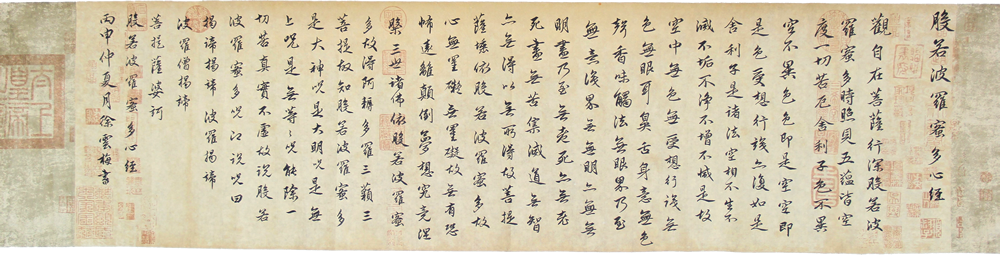 般若波羅蜜多心經
觀自在菩薩行深般若波
羅蜜多時照見五蘊皆空
度一切苦厄舍利子色不異
空不異色色即是空空即
是色受想行識亦復如是
舍利子是諸法空相不生不
滅不垢不淨不增不減是故
空中無色無受想行識無
色無眼耳鼻舌身意無色
聲香味觸法無眼界乃至
無意識界無無明亦無無
明盡乃至無老死亦無老
死盡無苦集滅道無智
亦無得以無所得故菩提
薩埵依般若波羅蜜多故
心無罣礙無罣礙故無有恐
怖遠離顛倒夢想究竟涅
槃三世諸佛依般若波羅蜜
多故得阿耨多羅三藐三
菩提故知般若波羅蜜多
是大神咒是大明咒是無
上咒是無等等咒能除一
切苦真實不虛故說般若
波羅蜜多咒即說咒曰
揭諦揭諦 波羅揭諦
波羅僧揭諦
菩提薩婆訶
般若波羅蜜多心經
丙申仲夏月徐雲梅書